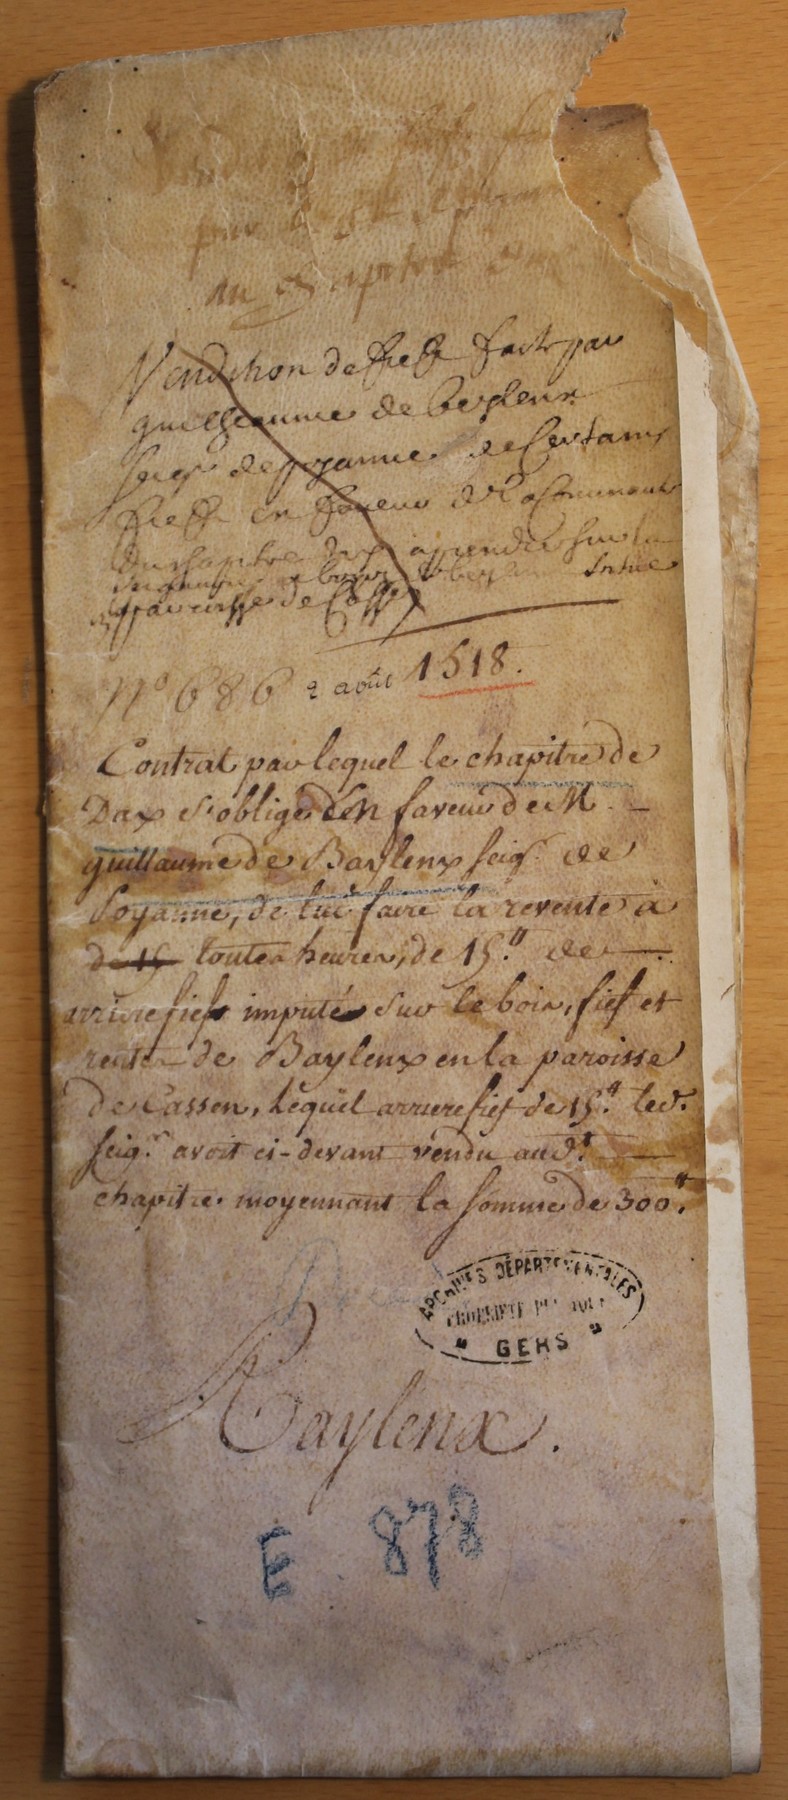 par le
au chapitre
Vendition de fieff faicte par
guilhaume de beyleux
seigr de poyanne de certains
fieff en faveur de
du chapitre Dax a prendre sur la
parroisse de Cassen
No 686 2 août 1518.
Contrat par lequel le chapitre de
Dax s'oblige en faveur de M. —
guillaume de Baylenx seigr. de
Poyanne, de lui faire la revente à
de 15 toutes heures, de 15.tt de —
arrierefiefs imputés sur le bois, fief et
rentes de Baylenx en la paroisse
de Cassen, lequel arrierefief de 15.tt led.
seigr. avoit ci-devant vendu aud.t —
chapitre moyennant la somme de 300.tt
ARCHIVES DÉPARTEMENTALES
PROPRIÉTÉ PUBLIQUE
GERS
Baylenx.
E 878